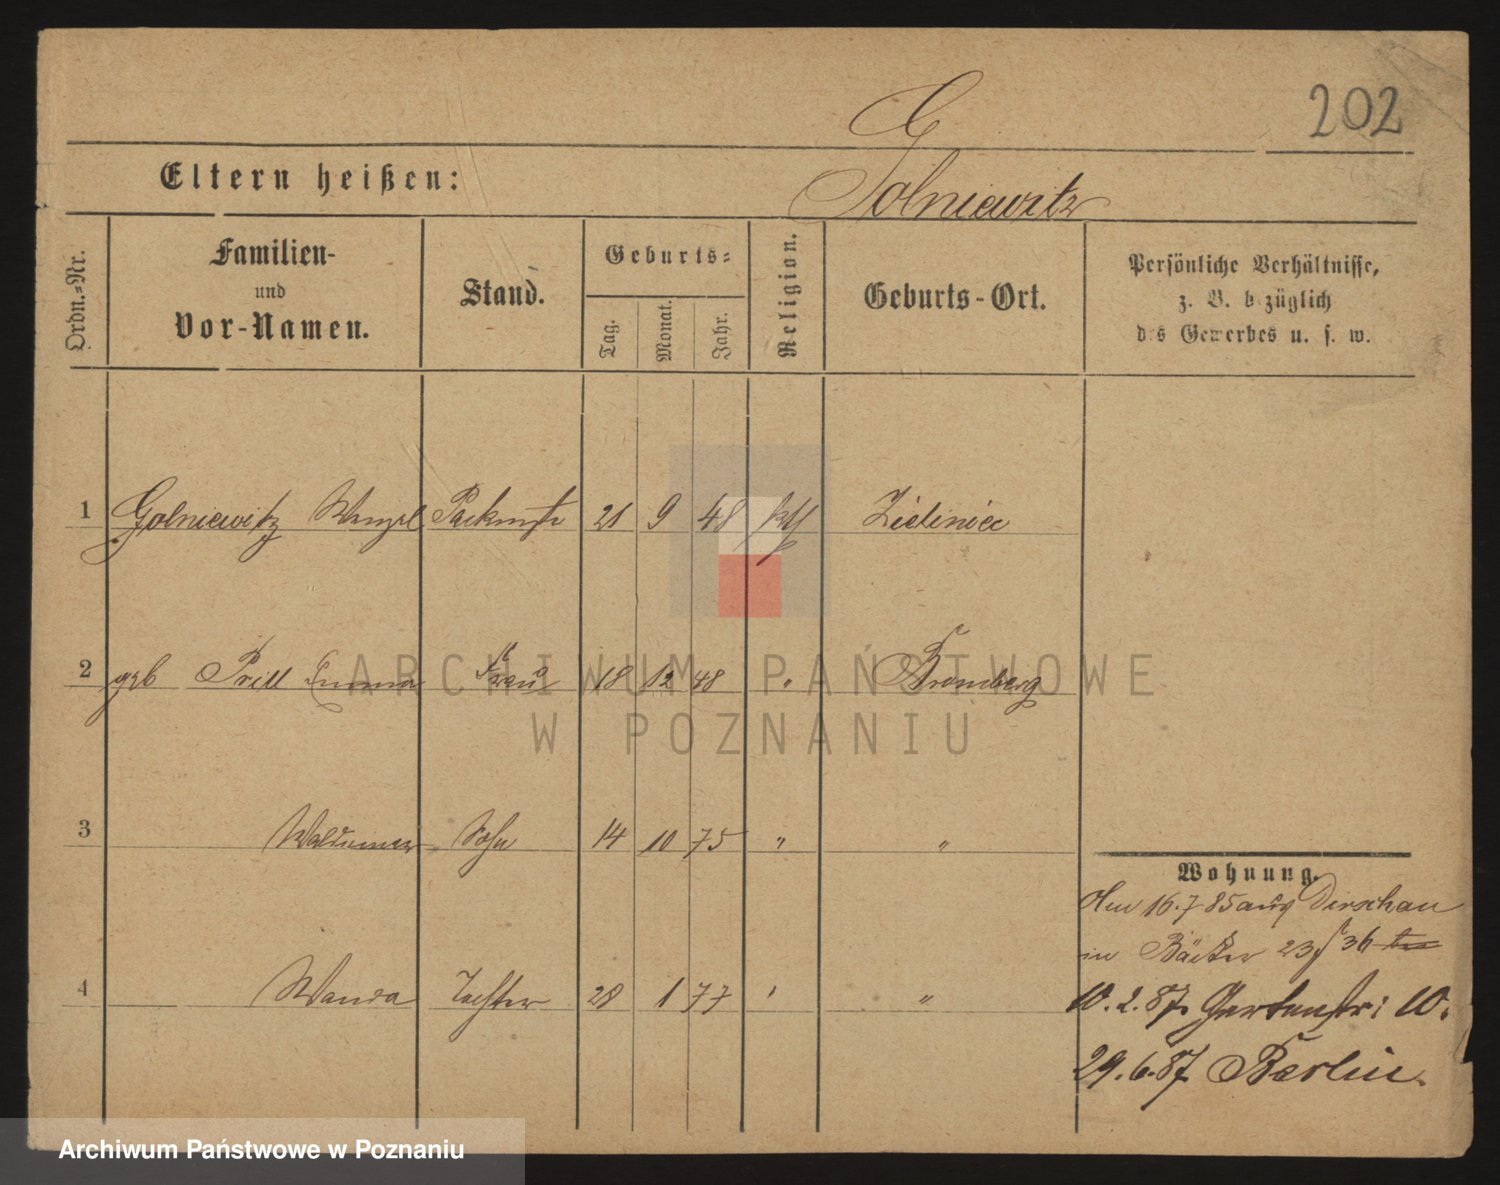 202
G
Eltern heißen:
Golniewitz
Ordn.-Nr.
Familien-
und
Vor-Namen.
Stand.
Geburts-
Tag.
Monat.
Jahr.
Religion.
Geburts-Ort.
Persönliche Verhältnisse,
z. B. bezüglich
des Gewerbes u. s. w.
1 Golniewitz Wenzel 21 9 48 kth Zieliniec
2 geb Prill Emma Frau 18 12 48 " Bromberg
3 Waldemar Sohn 14 10 75 " "
4 Wanda Tochter 28 1 77 " "
Wohnung.
Am 16.7 85 aus Dirschau
in Bäcker 23 / 36
10.2.87. Gartenstr: 10.
29.6.87 Berlin.
ARCHIWUM PAŃSTWOWE
W POZNANIU
Archiwum Państwowe w Poznaniu